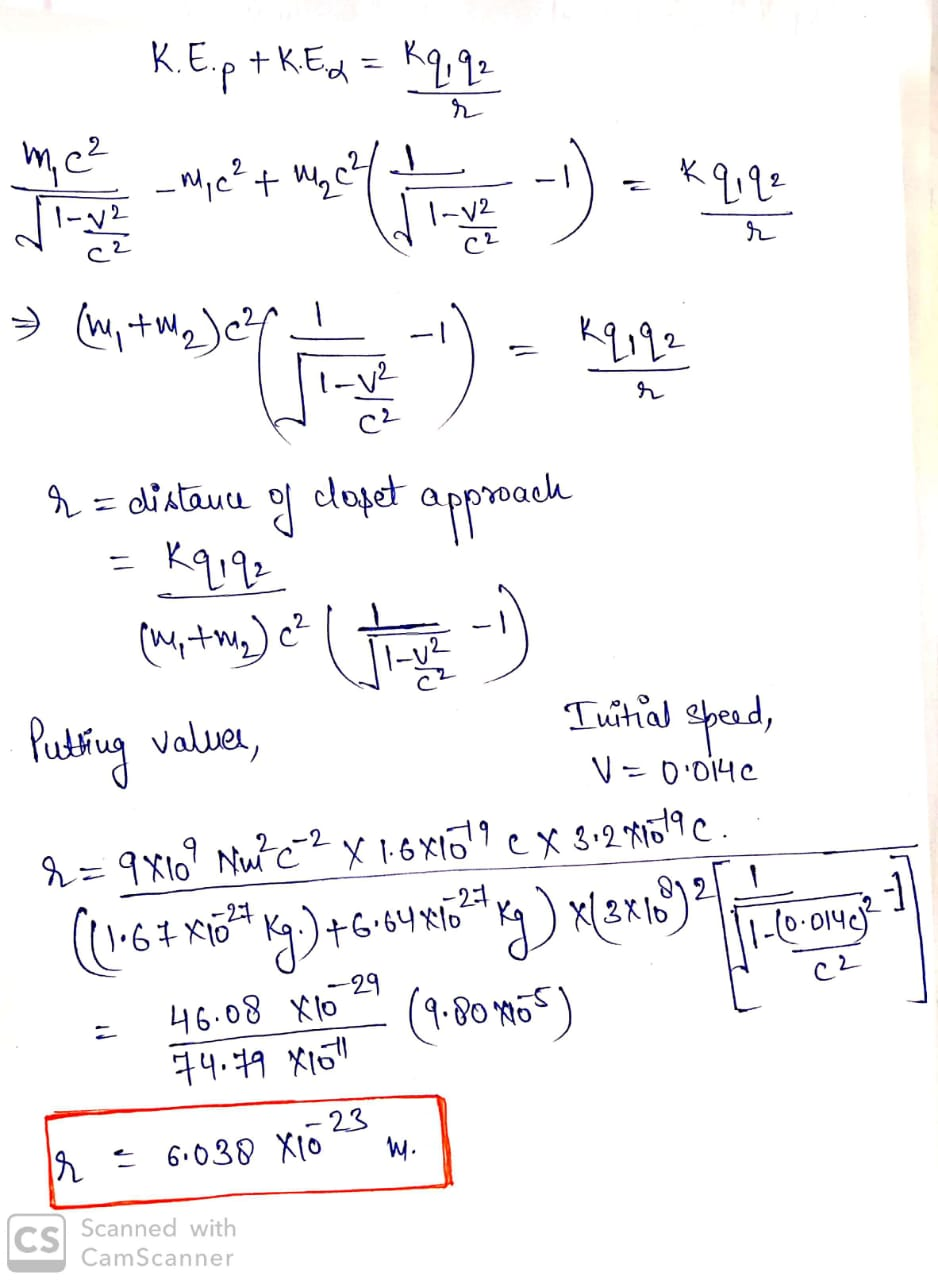 K.E.p + K.E𝛼 = Kq₁q₂/r
m₁c²/√(1-v²/c²) - m₁c² + m₂c²(1/√(1-v²/c²) -1) = Kq₁q₂/r
⇒ (m₁+m₂)c²(1/√(1-v²/c²) -1) = Kq₁q₂/r
r = distance of closet approach
= Kq₁q₂/(m₁+m₂)c²(1/√(1-v²/c²) -1)
Putting values,
Initial speed,
V = 0.014c
r = 9×10⁹ Nm²c⁻² × 1.6×10⁻¹⁹ c × 3.2×10⁻¹⁹ C.
((1.67×10⁻²⁷ Kg.)+6.64×10⁻²⁷ Kg) ×(3×10⁸)² [1/√(1-(0.014c)²/c²) -1]
= 46.08 ×10⁻²⁹/74.79 ×10⁻¹¹ (9.80×10⁻⁵)
r = 6.038 ×10⁻²³ m.
CS Scanned with
CamScanner